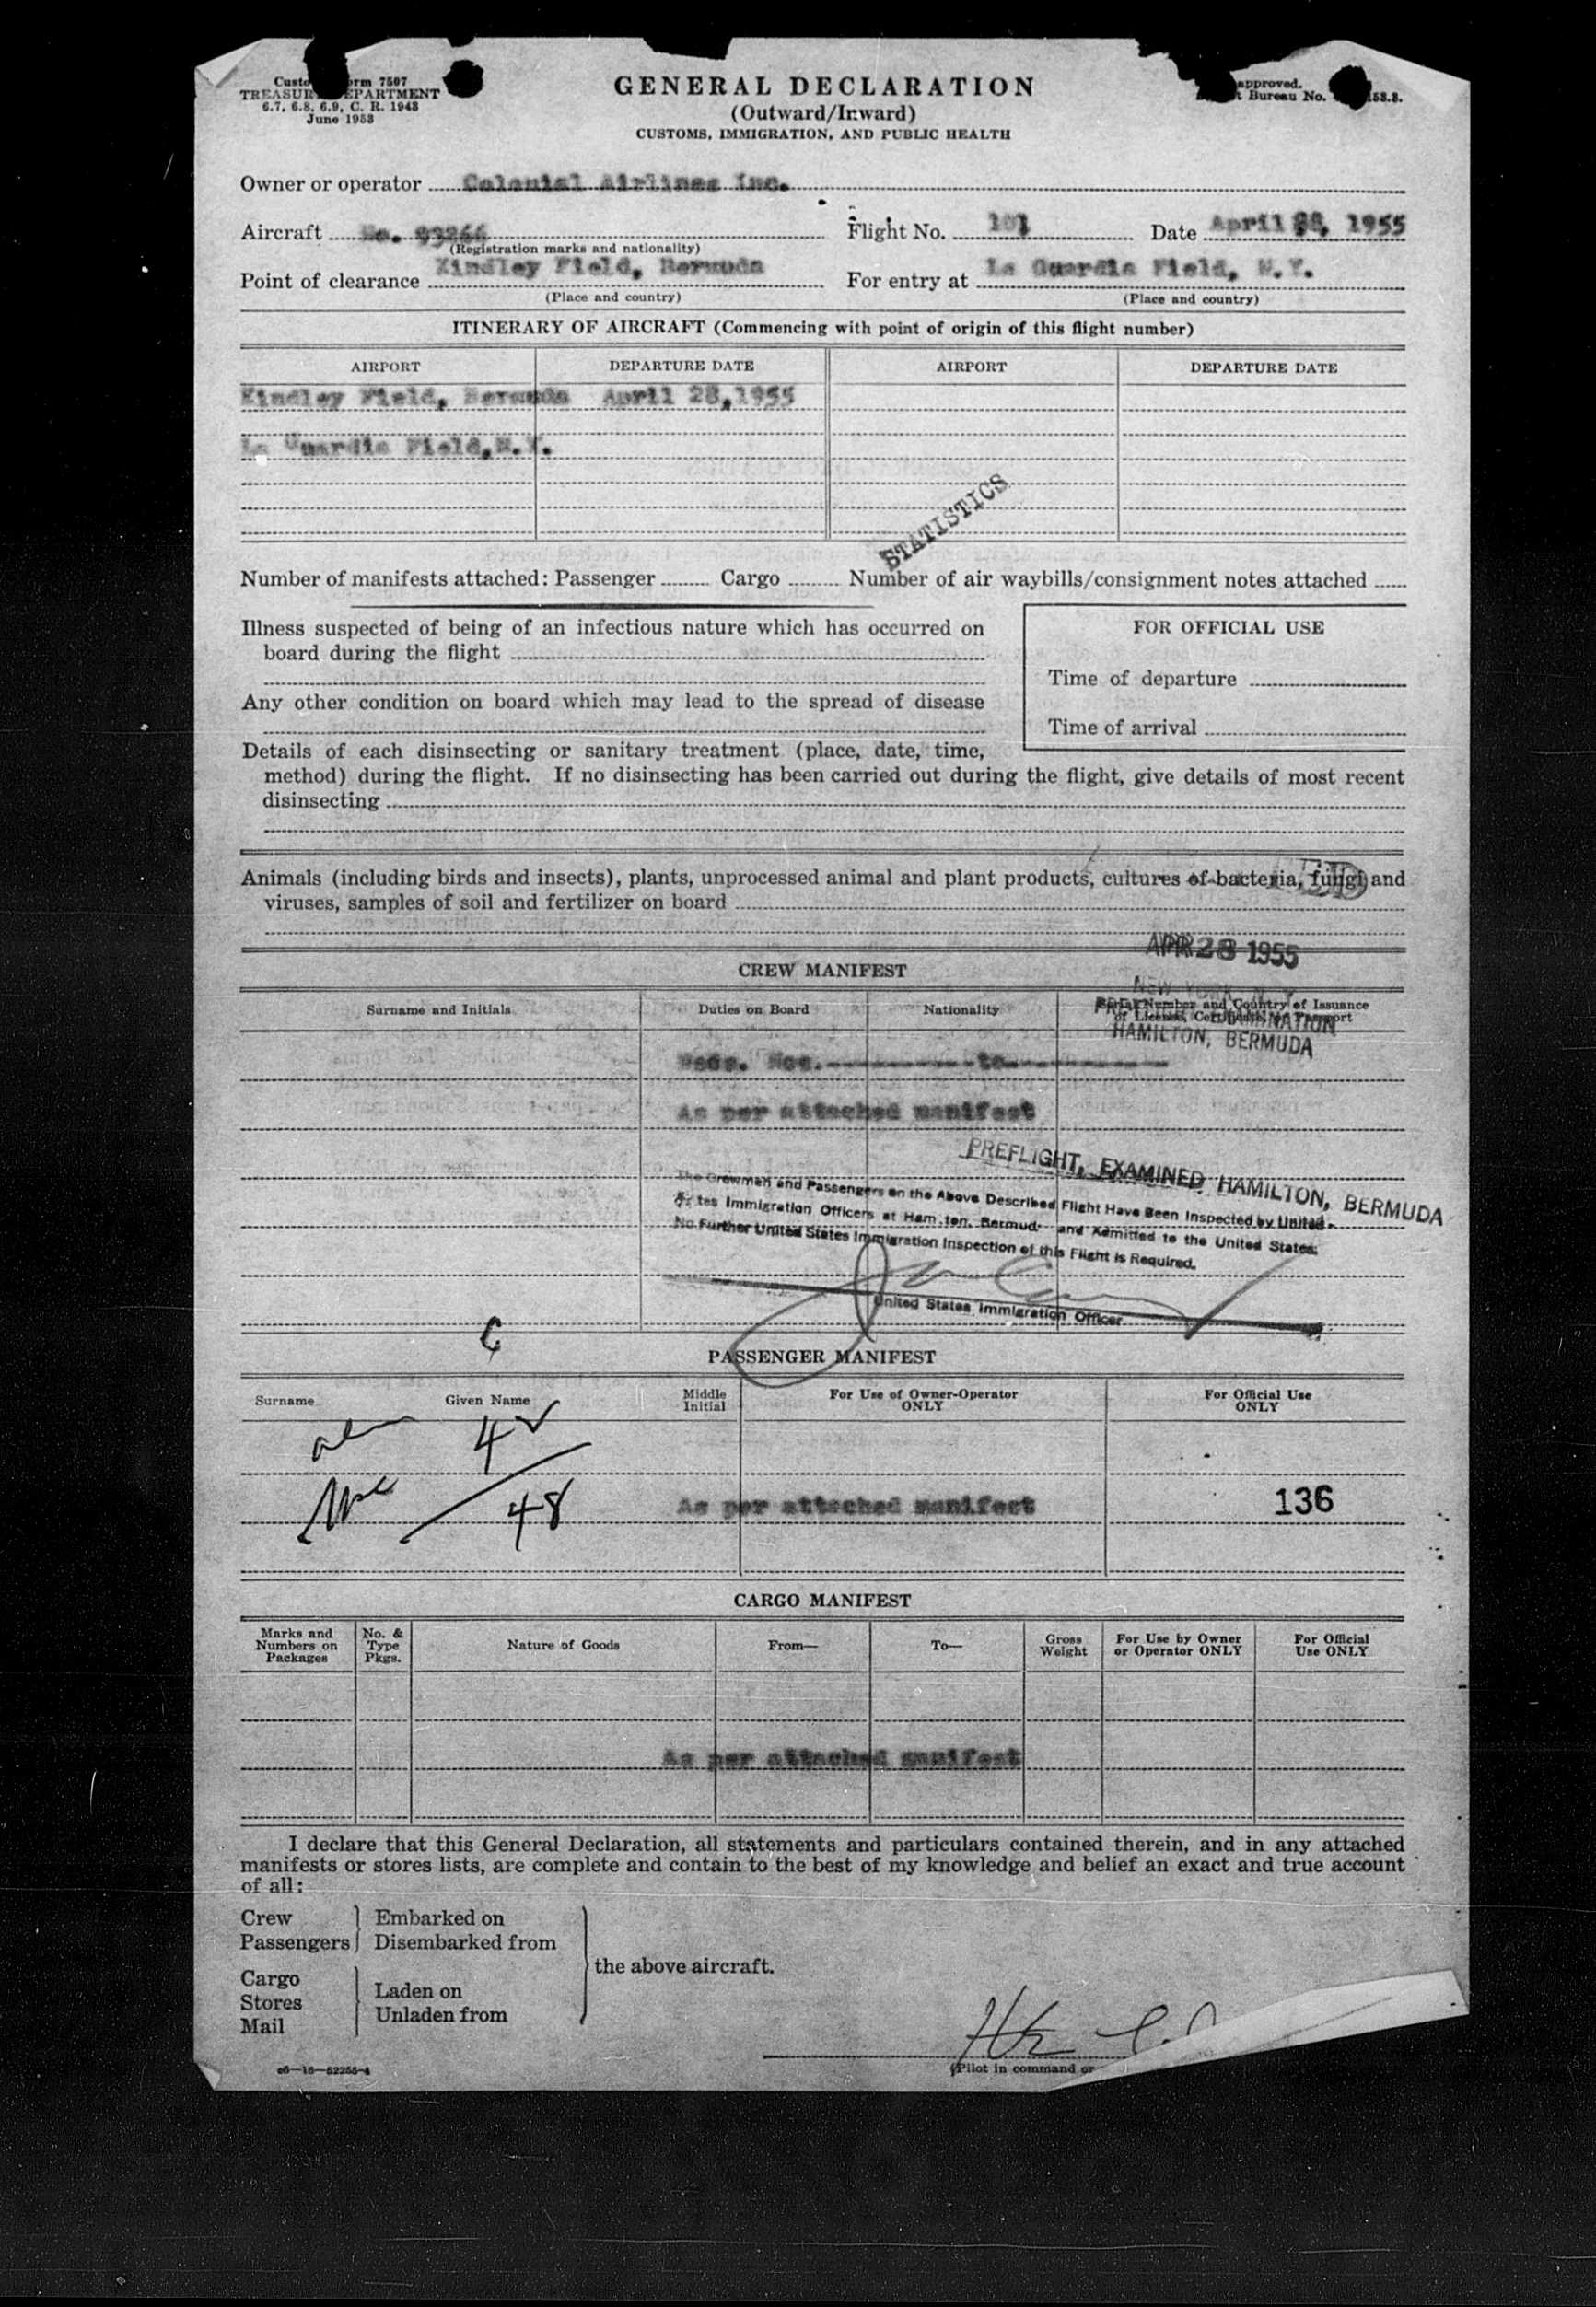 TREASUR EPARTMENT
6.7, 6.8, 6.9, C. R. 1943
June 1953
GENERAL DECLARATION
(Outward/Inward)
CUSTOMS, IMMIGRATION, AND PUBLIC HEALTH
approved.
Bureau No.
Owner or operator Colonial Airlines Inc.
Aircraft No. 93266 Flight No. 101 Date April 28, 1955
(Registration marks and nationality)
Point of clearance Kindley Field, Bermuda For entry at La Guardia Field, N.Y.
(Place and country) (Place and country)
ITINERARY OF AIRCRAFT (Commencing with point of origin of this flight number)
AIRPORT DEPARTURE DATE AIRPORT DEPARTURE DATE
Kindley Field, Bermuda April 28,1955
La Guardia Field,N.Y.
STATISTICS
Number of manifests attached: Passenger Cargo Number of air waybills/consignment notes attached
Illness suspected of being of an infectious nature which has occurred on
board during the flight
Any other condition on board which may lead to the spread of disease
FOR OFFICIAL USE
Time of departure
Time of arrival
Details of each disinsecting or sanitary treatment (place, date, time,
method) during the flight. If no disinsecting has been carried out during the flight, give details of most recent
disinsecting
Animals (including birds and insects), plants, unprocessed animal and plant products, cultures of bacteria, fungi and
viruses, samples of soil and fertilizer on board
APR 28 1955
CREW MANIFEST
NEW YORK, N.Y.
Surname and Initials Duties on Board Nationality Serial Number and Country of Issuance
of License, Certificate or Passport
HAMILTON, BERMUDA
Nos. to
As per attached manifest
PREFLIGHT, EXAMINED HAMILTON, BERMUDA
The Crewman and Passengers on the Above Described Flight Have Been Inspected by United
States Immigration Officers at Hamilton, Bermuda and Admitted to the United States.
No Further United States Immigration Inspection of this Flight is Required.
United States Immigration Officer
PASSENGER MANIFEST
Surname Given Name Middle Initial For Use of Owner-Operator ONLY For Official Use ONLY
4
48
As per attached manifest
136
CARGO MANIFEST
Marks and Numbers on Packages No. & Type Pkgs. Nature of Goods From— To— Gross Weight For Use by Owner or Operator ONLY For Official Use ONLY
As per attached manifest
I declare that this General Declaration, all statements and particulars contained therein, and in any attached
manifests or stores lists, are complete and contain to the best of my knowledge and belief an exact and true account
of all:
Crew Embarked on
Passengers Disembarked from
the above aircraft.
Cargo
Stores Laden on
Mail Unladen from
(Pilot in command or
c6—16—52255-4